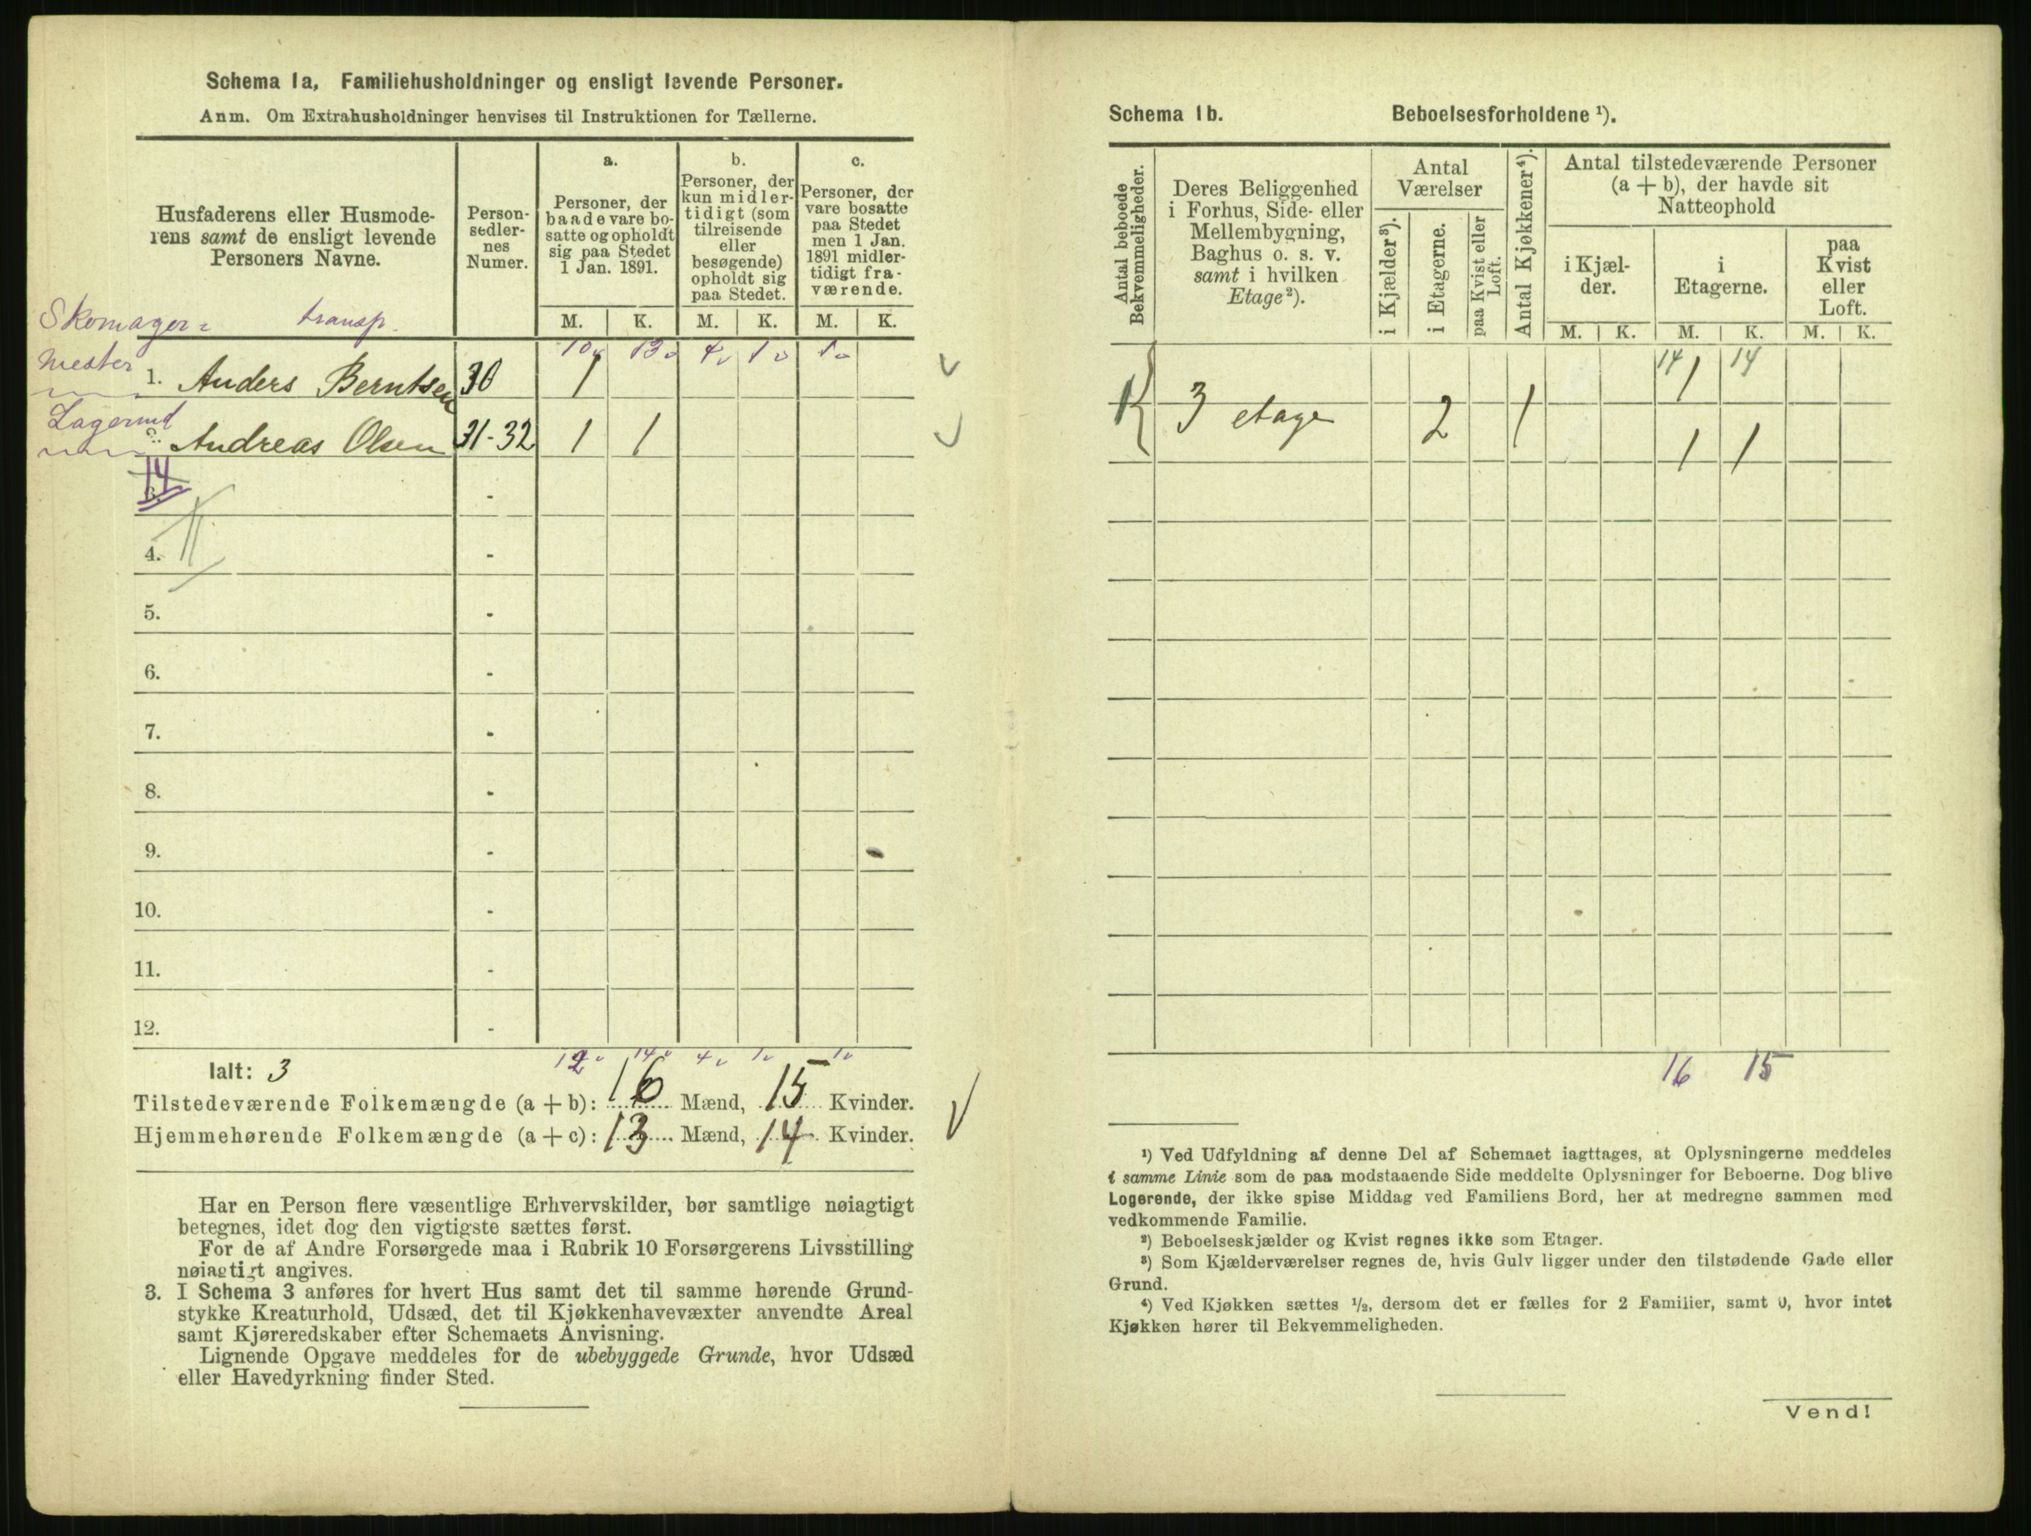 Schema 1a, Familiehusholdninger og ensligt levende Personer.
Anm. Om Extrahusholdninger henvises til Instruktionen for Tællerne.
Husfaderens eller Husmode-
rens samt de ensligt levende
Personers Navne.
Person-
sedler-
nes
Numer.
a.
Personer, der
baade vare bo-
satte og opholdt
sig paa Stedet
1 Jan. 1891.
b.
Personer, der
kun midler-
tidigt (som
tilreisende
eller
besøgende)
opholdt sig
paa Stedet.
c.
Personer, der
vare bosatte
paa Stedet
men 1 Jan.
1891 midler-
tidigt fra-
værende.
M. K. M. K. M. K.
Skomager= transp.
10 13 4 1 1
mester
1. Anders Berntsen 30 1
Lagermd
2. Andreas Olsen 31-32 1 1
14
3. -
4. -
5. -
6. -
7. -
8. -
9. -
10. -
11. -
12. -
12 14 4 1 1
Ialt: 3
Tilstedeværende Folkemængde (a + b): 16 Mænd, 15 Kvinder.
Hjemmehørende Folkemængde (a + c): 13 Mænd, 14 Kvinder.
Har en Person flere væsentlige Erhvervskilder, bør samtlige nøiagtigt
betegnes, idet dog den vigtigste sættes først.
For de af Andre Forsørgede maa i Rubrik 10 Forsørgerens Livsstilling
nøiagtigt angives.
3. I Schema 3 anføres for hvert Hus samt det til samme hørende Grund-
stykke Kreaturhold, Udsæd, det til Kjøkkenhavevæxter anvendte Areal
samt Kjøreredskaber efter Schemaets Anvisning.
Lignende Opgave meddeles for de ubebyggede Grunde, hvor Udsæd
eller Havedyrkning finder Sted.
Schema 1b. Beboelsesforholdene ¹).
Antal beboede
Bekvemmeligheder.
Deres Beliggenhed
i Forhus, Side- eller
Mellembygning,
Baghus o. s. v.
samt i hvilken
Etage²).
Antal
Værelser
i Kjælder³).
i Etagerne.
paa Kvist eller
Loft.
Antal Kjøkkener⁴).
Antal tilstedeværende Personer
(a + b), der havde sit
Natteophold
i Kjæl-
der.
i
Etagerne.
paa
Kvist
eller
Loft.
M. K. M. K. M. K.
14 14
1
3 etage 2 1
1 1
16 15
¹) Ved Udfyldning af denne Del af Schemaet iagttages, at Oplysningerne meddeles
i samme Linie som de paa modstaaende Side meddelte Oplysninger for Beboerne. Dog blive
Logerende, der ikke spise Middag ved Familiens Bord, her at medregne sammen med
vedkommende Familie.
²) Beboelseskjælder og Kvist regnes ikke som Etager.
³) Som Kjælderværelser regnes de, hvis Gulv ligger under den tilstødende Gade eller
Grund.
⁴) Ved Kjøkken sættes ½, dersom det er fælles for 2 Familier, samt 0, hvor intet
Kjøkken hører til Bekvemmeligheden.
Vend!